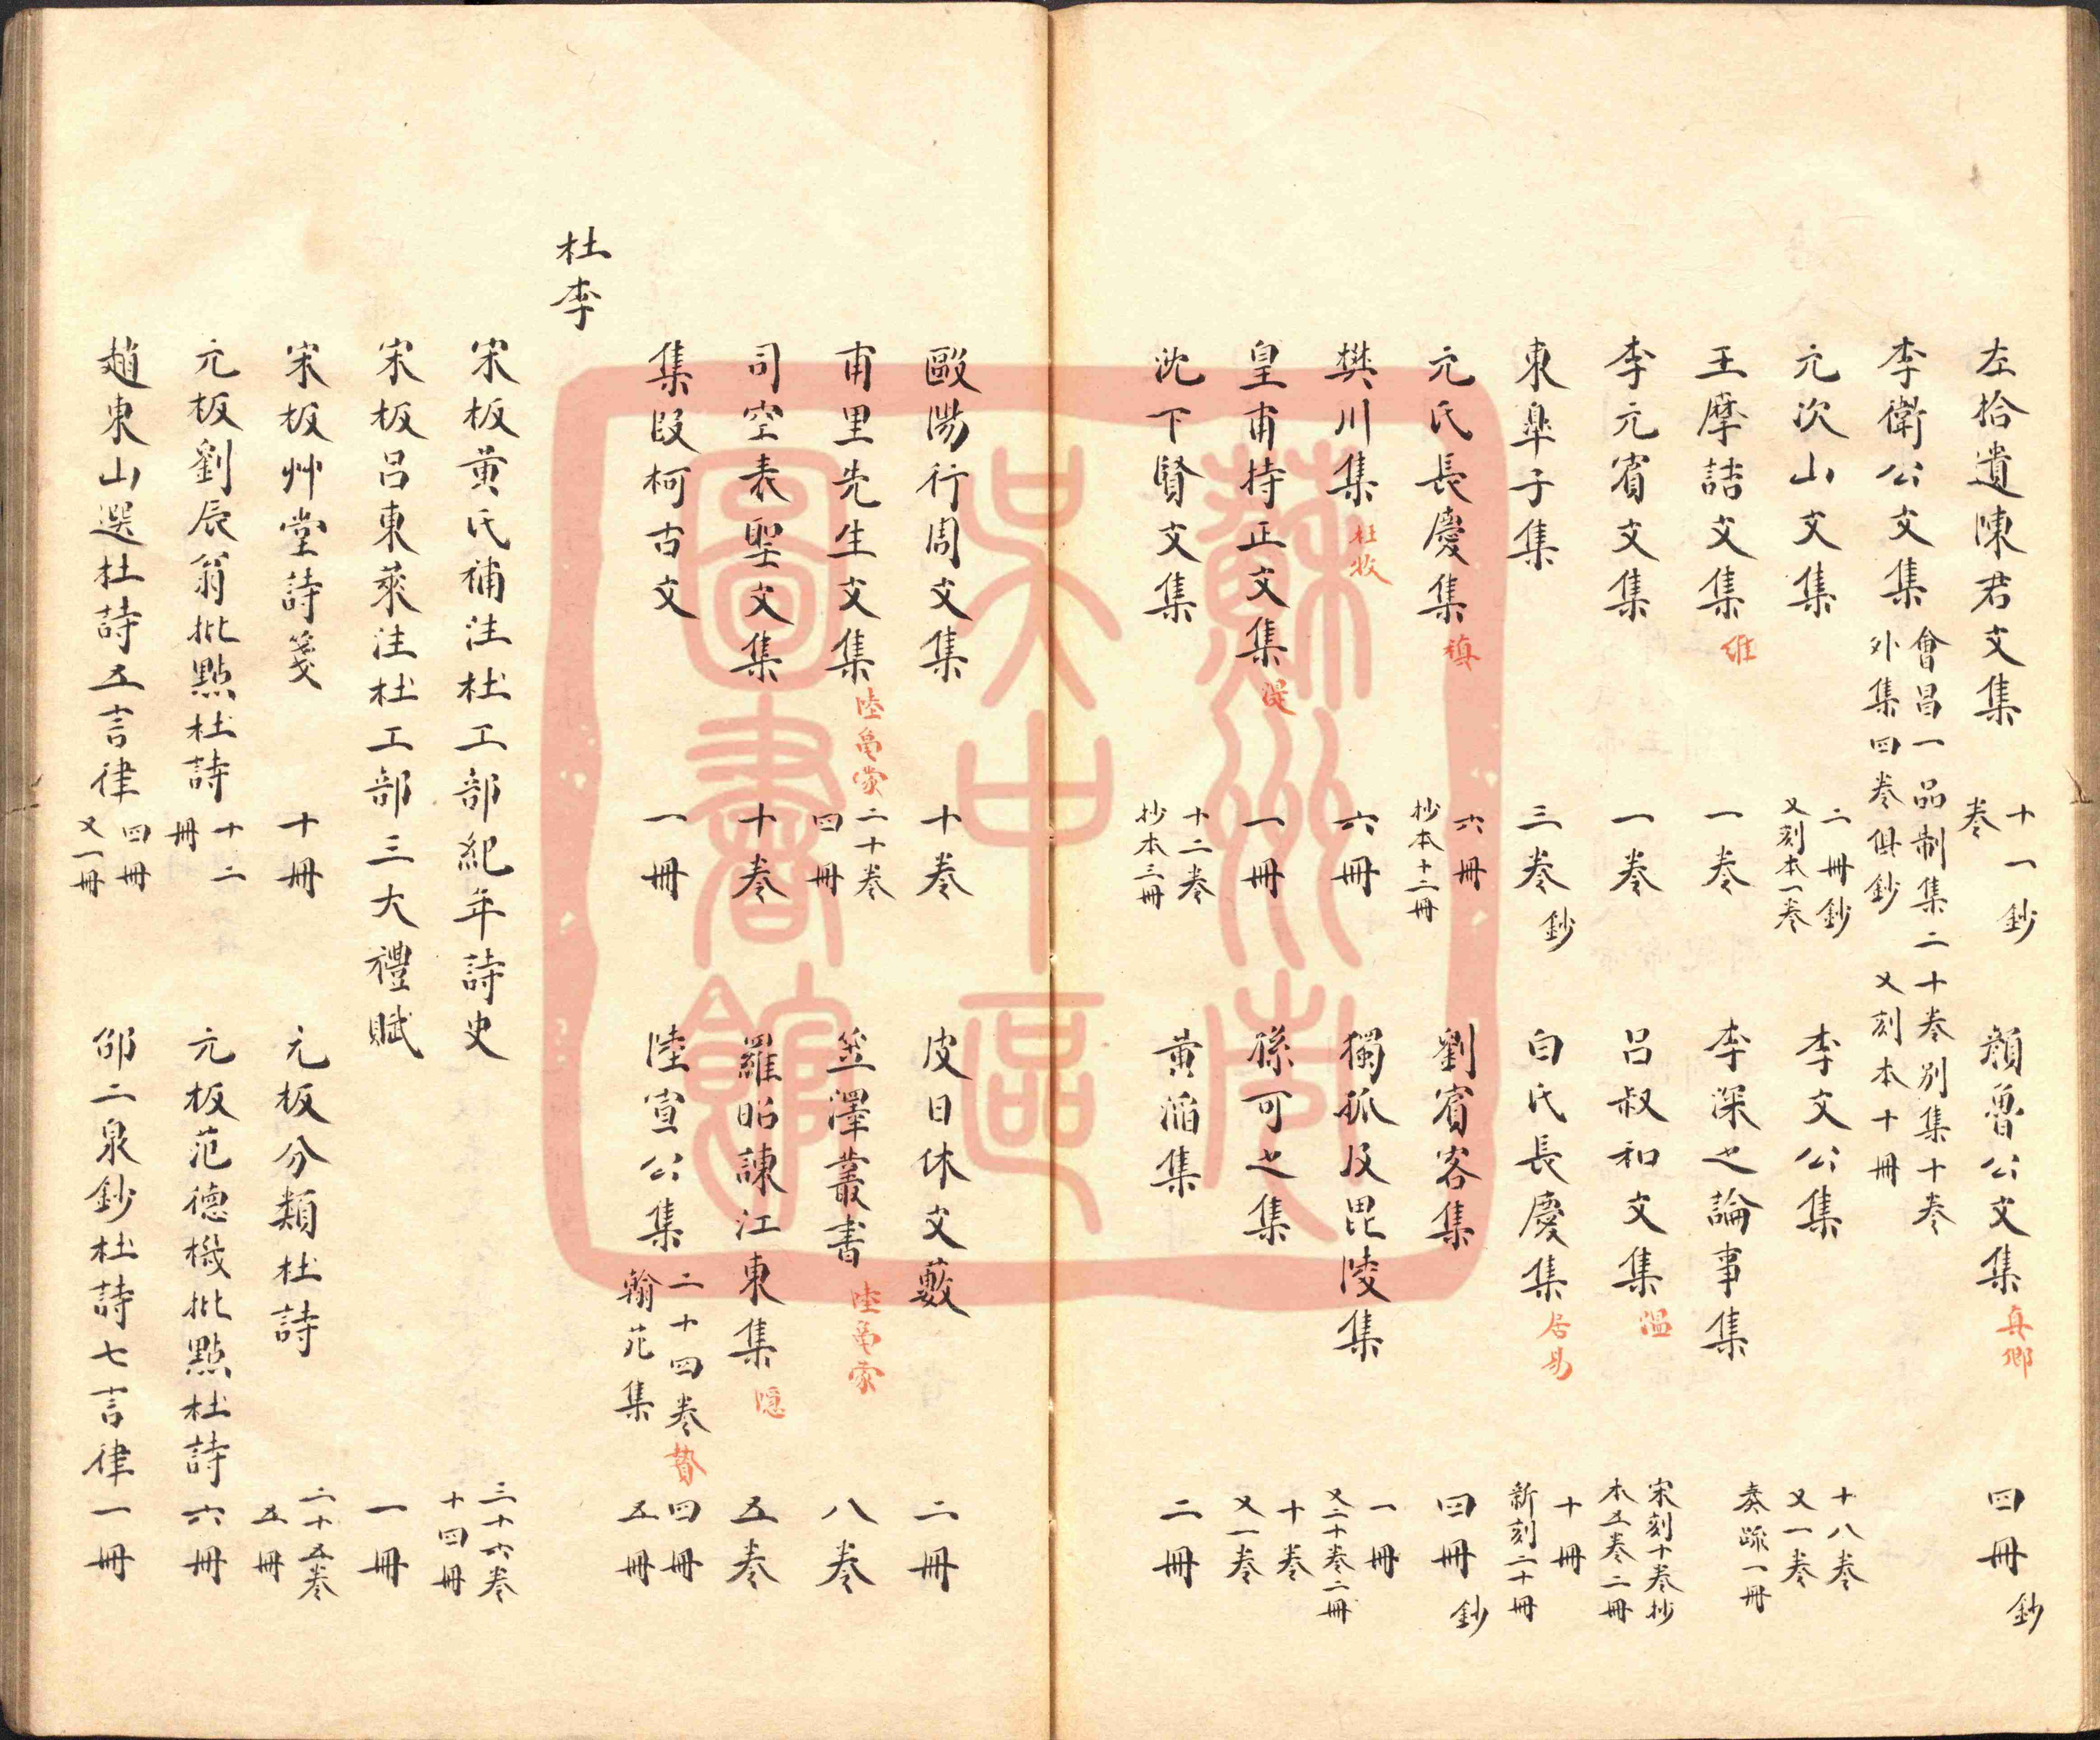 左拾遺陳君文集 十一卷 鈔 顏魯公文集 真卿 四冊 鈔
李衛公文集 會昌一品制集二十卷別集十卷外集四卷俱鈔 又刻本十冊
元次山文集 二冊鈔 又刻本一卷 李文公集 十八卷 又一卷
王摩詰文集 維 一卷 李深之論事集 奏疏一冊
李元賓文集 一卷 呂叔和文集 溫 宋刻十卷抄本五卷二冊
東臯子集 三卷 鈔 白氏長慶集 居易 十冊 新刻二十冊
元氏長慶集 稹 六冊 抄本十二冊 劉賓客集 四冊 鈔
樊川集 杜牧 六冊 獨孤及毘陵集 一冊 又二十卷二冊
皇甫持正文集 湜 一冊 孫可之集 十卷 又一卷
沈下賢文集 十二卷 抄本三冊 黃滔集 二冊
歐陽行周文集 十卷 皮日休文藪 二冊
甫里先生文集 陸龜蒙 二十卷 四冊 笠澤叢書 陸龜蒙 八卷
司空表聖文集 十卷 羅昭諫江東集 隱 五卷
集段柯古文 一冊 陸宣公集 二十四卷 贄 翰苑集 四冊 五冊
杜李
宋板黃氏補注杜工部紀年詩史 三十六卷 十四冊
宋板呂東萊注杜工部三大禮賦 一冊
宋板艸堂詩箋 十冊 元板分類杜詩 二十五卷 五冊
元板劉辰翁批點杜詩 十二冊 元板范德機批點杜詩 六冊
趙東山選杜詩五言律 四冊 又一冊 邵二泉鈔杜詩七言律 一冊
蘇州市
吳中區
圖書館